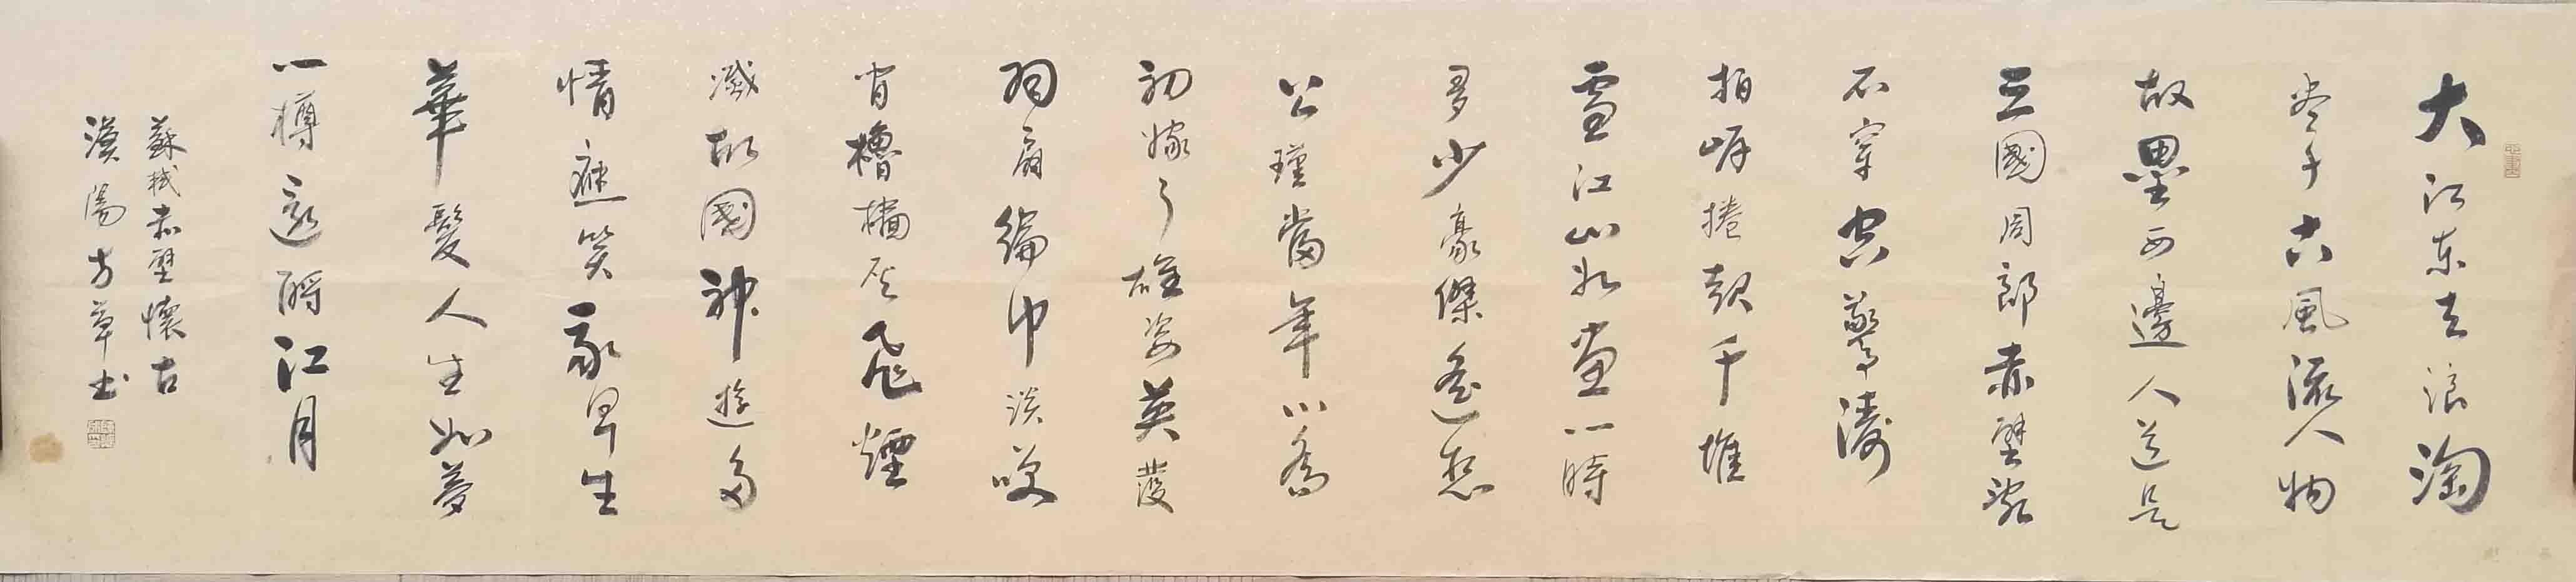 大江东去浪淘
尽千古風流人物
故壘西邊人道是
三國周郎赤壁乱
石穿空驚濤
拍岸捲起千堆
雪江山如畫一時
多少豪傑遙想
公瑾當年小喬
初嫁了雄姿英發
羽扇綸巾談笑
間檣櫓灰飛煙
滅故國神遊多
情應笑我早生
華髮人生如夢
一樽還酹江月
蘇軾赤壁懷古
漢陽方草书